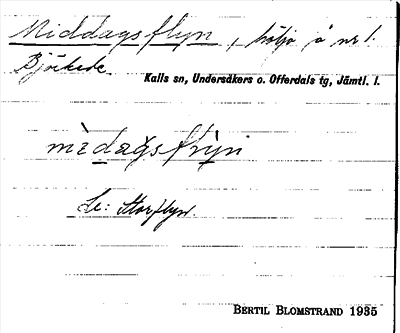 Middagsflyn, hölja å nr 1.
Björkede.
Kalls sn, Undersåkers o. Offerdals tg, Jämtl. l.
mìdagsflỳn
Se: Storflyn.
BERTIL BLOMSTRAND 1935